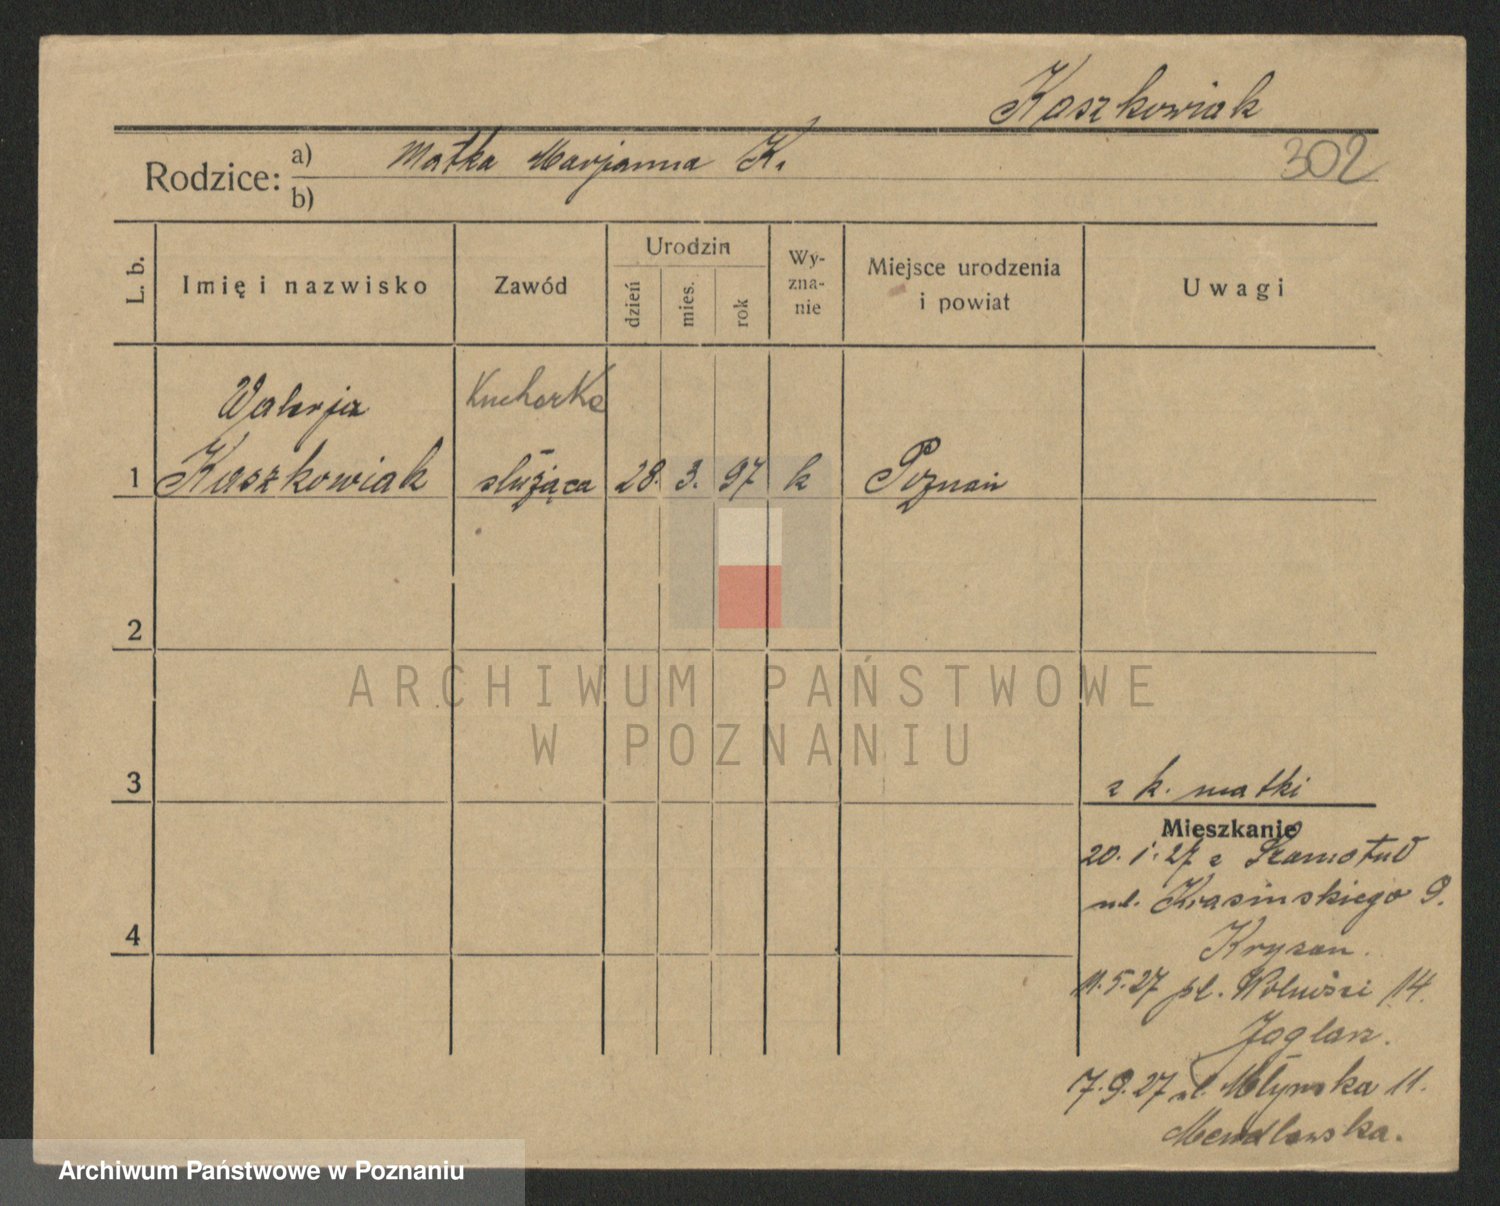 Kaszkowiak
Rodzice: a) Matka Marjanna K.
302
b)
L. b.
Imię i nazwisko
Zawód
Urodzin
dzień
mies.
rok
Wy-
zna-
nie
Miejsce urodzenia
i powiat
Uwagi
Walerja
Kucharka
1 Kaszkowiak służąca 28. 3. 97 k Poznań
2
ARCHIWUM PAŃSTWOWE
W POZNANIU
3
z k. matki
Mieszkanie
20. 1. 27 z Szamotuł
ul. Krasińskiego 9.
4
Kryzan.
11. 5. 27 pl. Wolności 14.
Jaglarz.
7. 9. 27 ul. Młyńska 11.
Mendlewska.
Archiwum Państwowe w Poznaniu